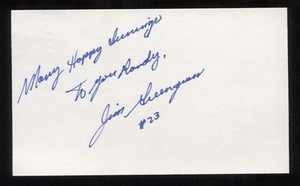 Many Happy Innings
To you Randy,
Jim Greengrass
#23